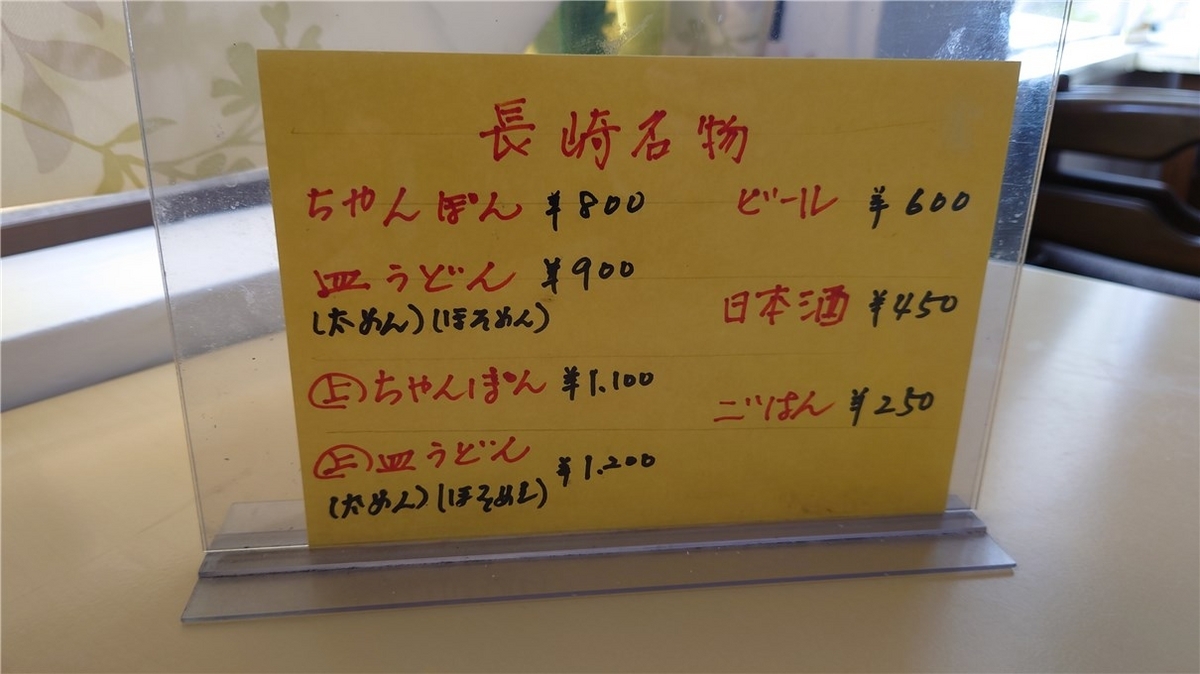 長崎名物
ちゃんぽん ¥800
皿うどん ¥900
(太めん)(ほそめん)
㊤ちゃんぽん ¥1.100
㊤皿うどん ¥1.200
(太めん)(ほそめん)
ビール ¥600
日本酒 ¥450
ごはん ¥250